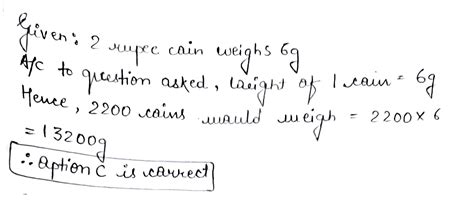 Given: 2 rupee coin weighs 6g
A/c to question asked, weight of 1 coin = 6g
Hence, 2200 coins would weigh = 2200 × 6
= 13200g
∴ option C is correct